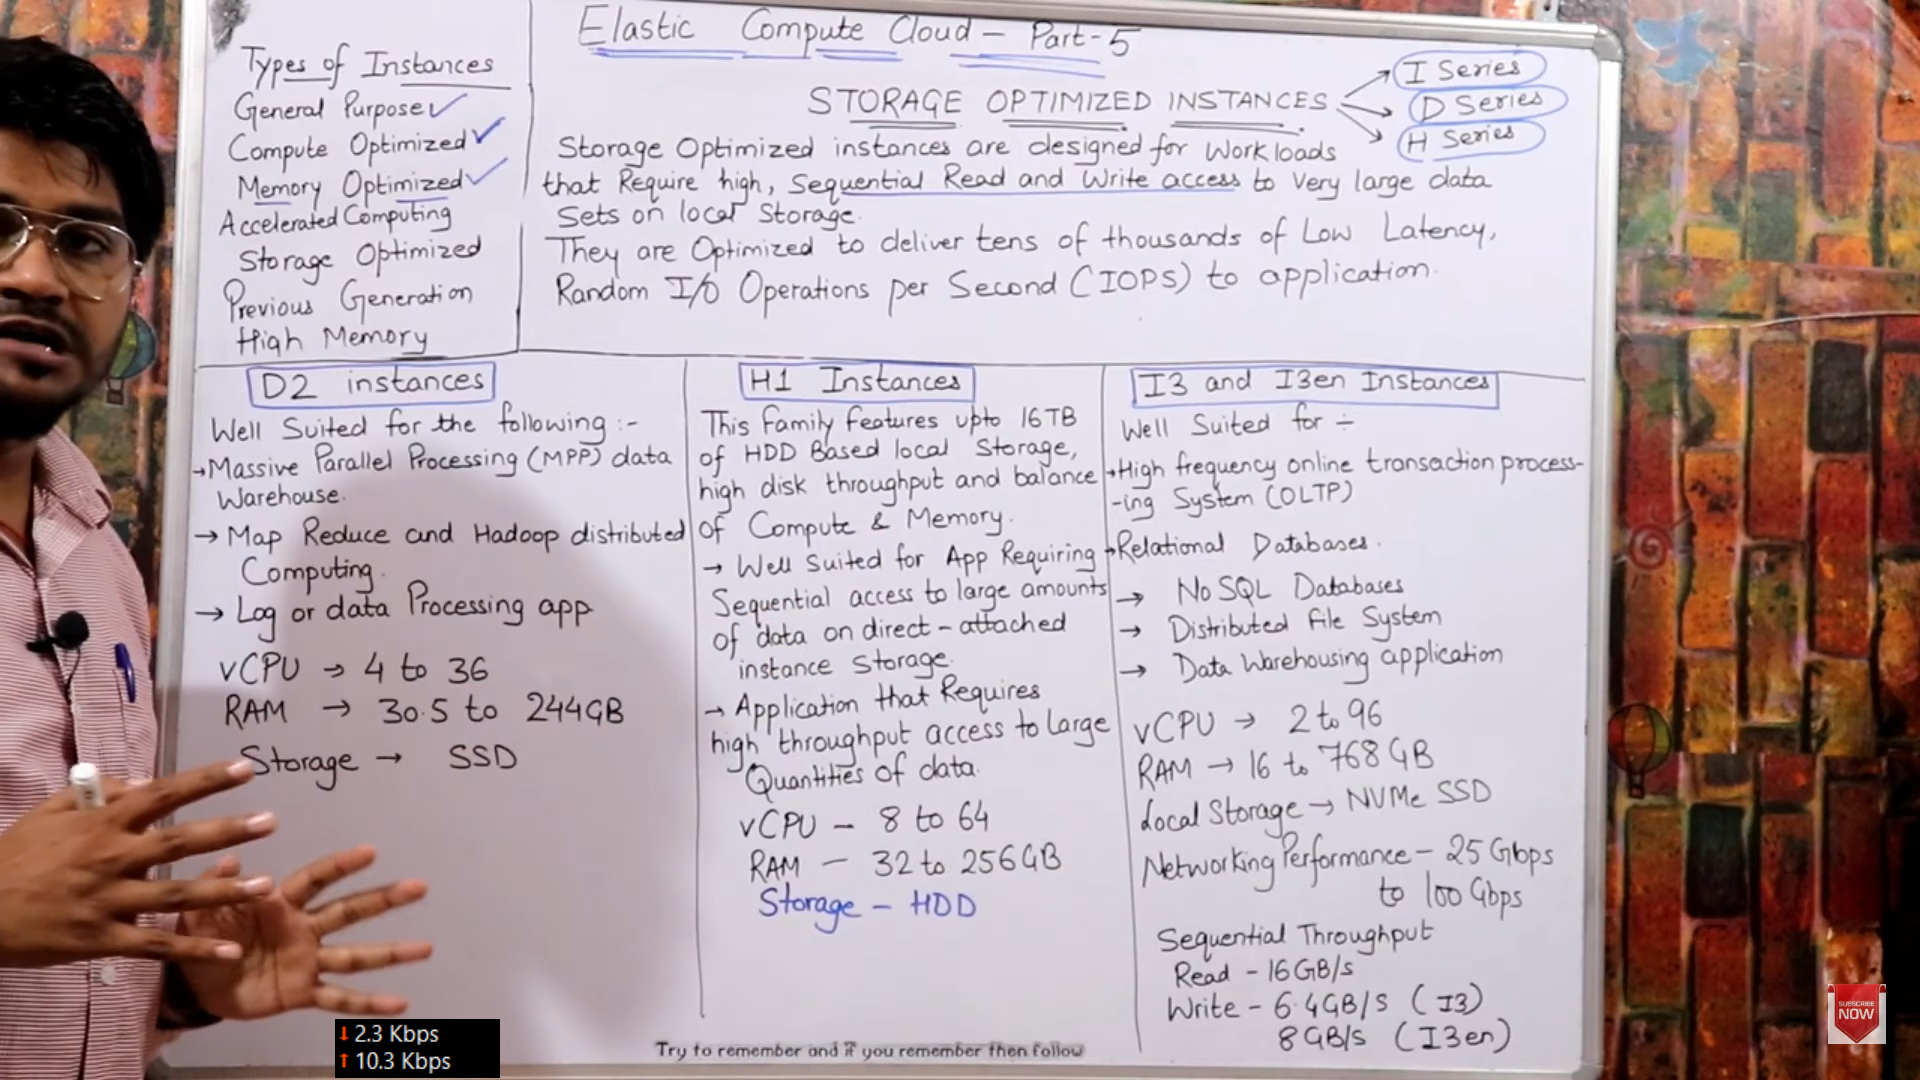 Elastic Compute Cloud - Part-5
Types of Instances
General Purpose ✓
Compute Optimized ✓
Memory Optimized ✓
Accelerated Computing
Storage Optimized
Previous Generation
High Memory
STORAGE OPTIMIZED INSTANCES
I Series
D Series
H Series
Storage Optimized instances are designed for Workloads
that Require high, Sequential Read and Write access to Very large data
Sets on local Storage.
They are Optimized to deliver tens of thousands of Low Latency,
Random I/O Operations per Second (IOPS) to application.
D2 instances
Well Suited for the following :-
→ Massive Parallel Processing (MPP) data
Warehouse.
→ Map Reduce and Hadoop distributed
Computing.
→ Log or data Processing app
vCPU → 4 to 36
RAM → 30.5 to 244GB
Storage → SSD
H1 Instances
This Family features upto 16TB
of HDD Based local Storage,
high disk throughput and balance
of Compute & Memory.
→ Well Suited for App Requiring
Sequential access to large amounts
of data on direct-attached
instance Storage.
→ Application that Requires
high throughput access to Large
Quantities of data.
vCPU - 8 to 64
RAM - 32 to 256GB
Storage - HDD
I3 and I3en Instances
Well Suited for ÷
→ High frequency online transaction process-
-ing System (OLTP)
→ Relational Databases.
→ NoSQL Databases
→ Distributed file System
→ Data Warehousing application
vCPU → 2 to 96
RAM → 16 to 768GB
Local Storage → NVMe SSD
Networking Performance - 25 Gbps
to 100 Gbps
Sequential Throughput
Read - 16GB/s
Write - 6.4GB/s (I3)
8GB/s (I3en)
↓ 2.3 Kbps
↑ 10.3 Kbps
Try to remember and if you remember then follow
SUBSCRIBE
NOW